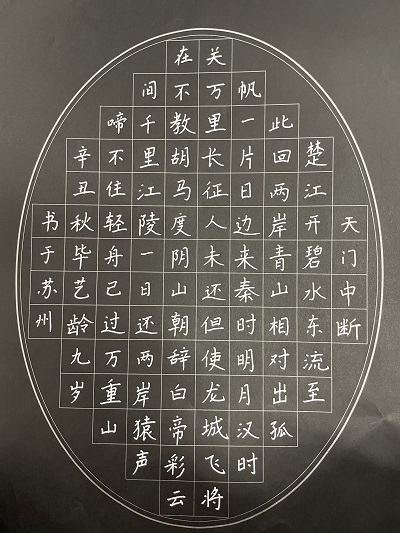 天门中断
楚江开碧水东流至
此回两岸青山相对出孤
帆一片日边来秦时明月汉时
关万里长征人未还但使龙城飞将
在不教胡马度阴山朝辞白帝彩云
间千里江陵一日还两岸猿声
啼不住轻舟已过万重山
辛丑秋毕艺龄九岁
书于苏州